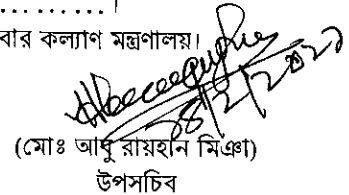 ..........।
বার কল্যাণ মন্ত্রণালয়।
(মোঃ আবু রায়হান মিঞা)
উপসচিব